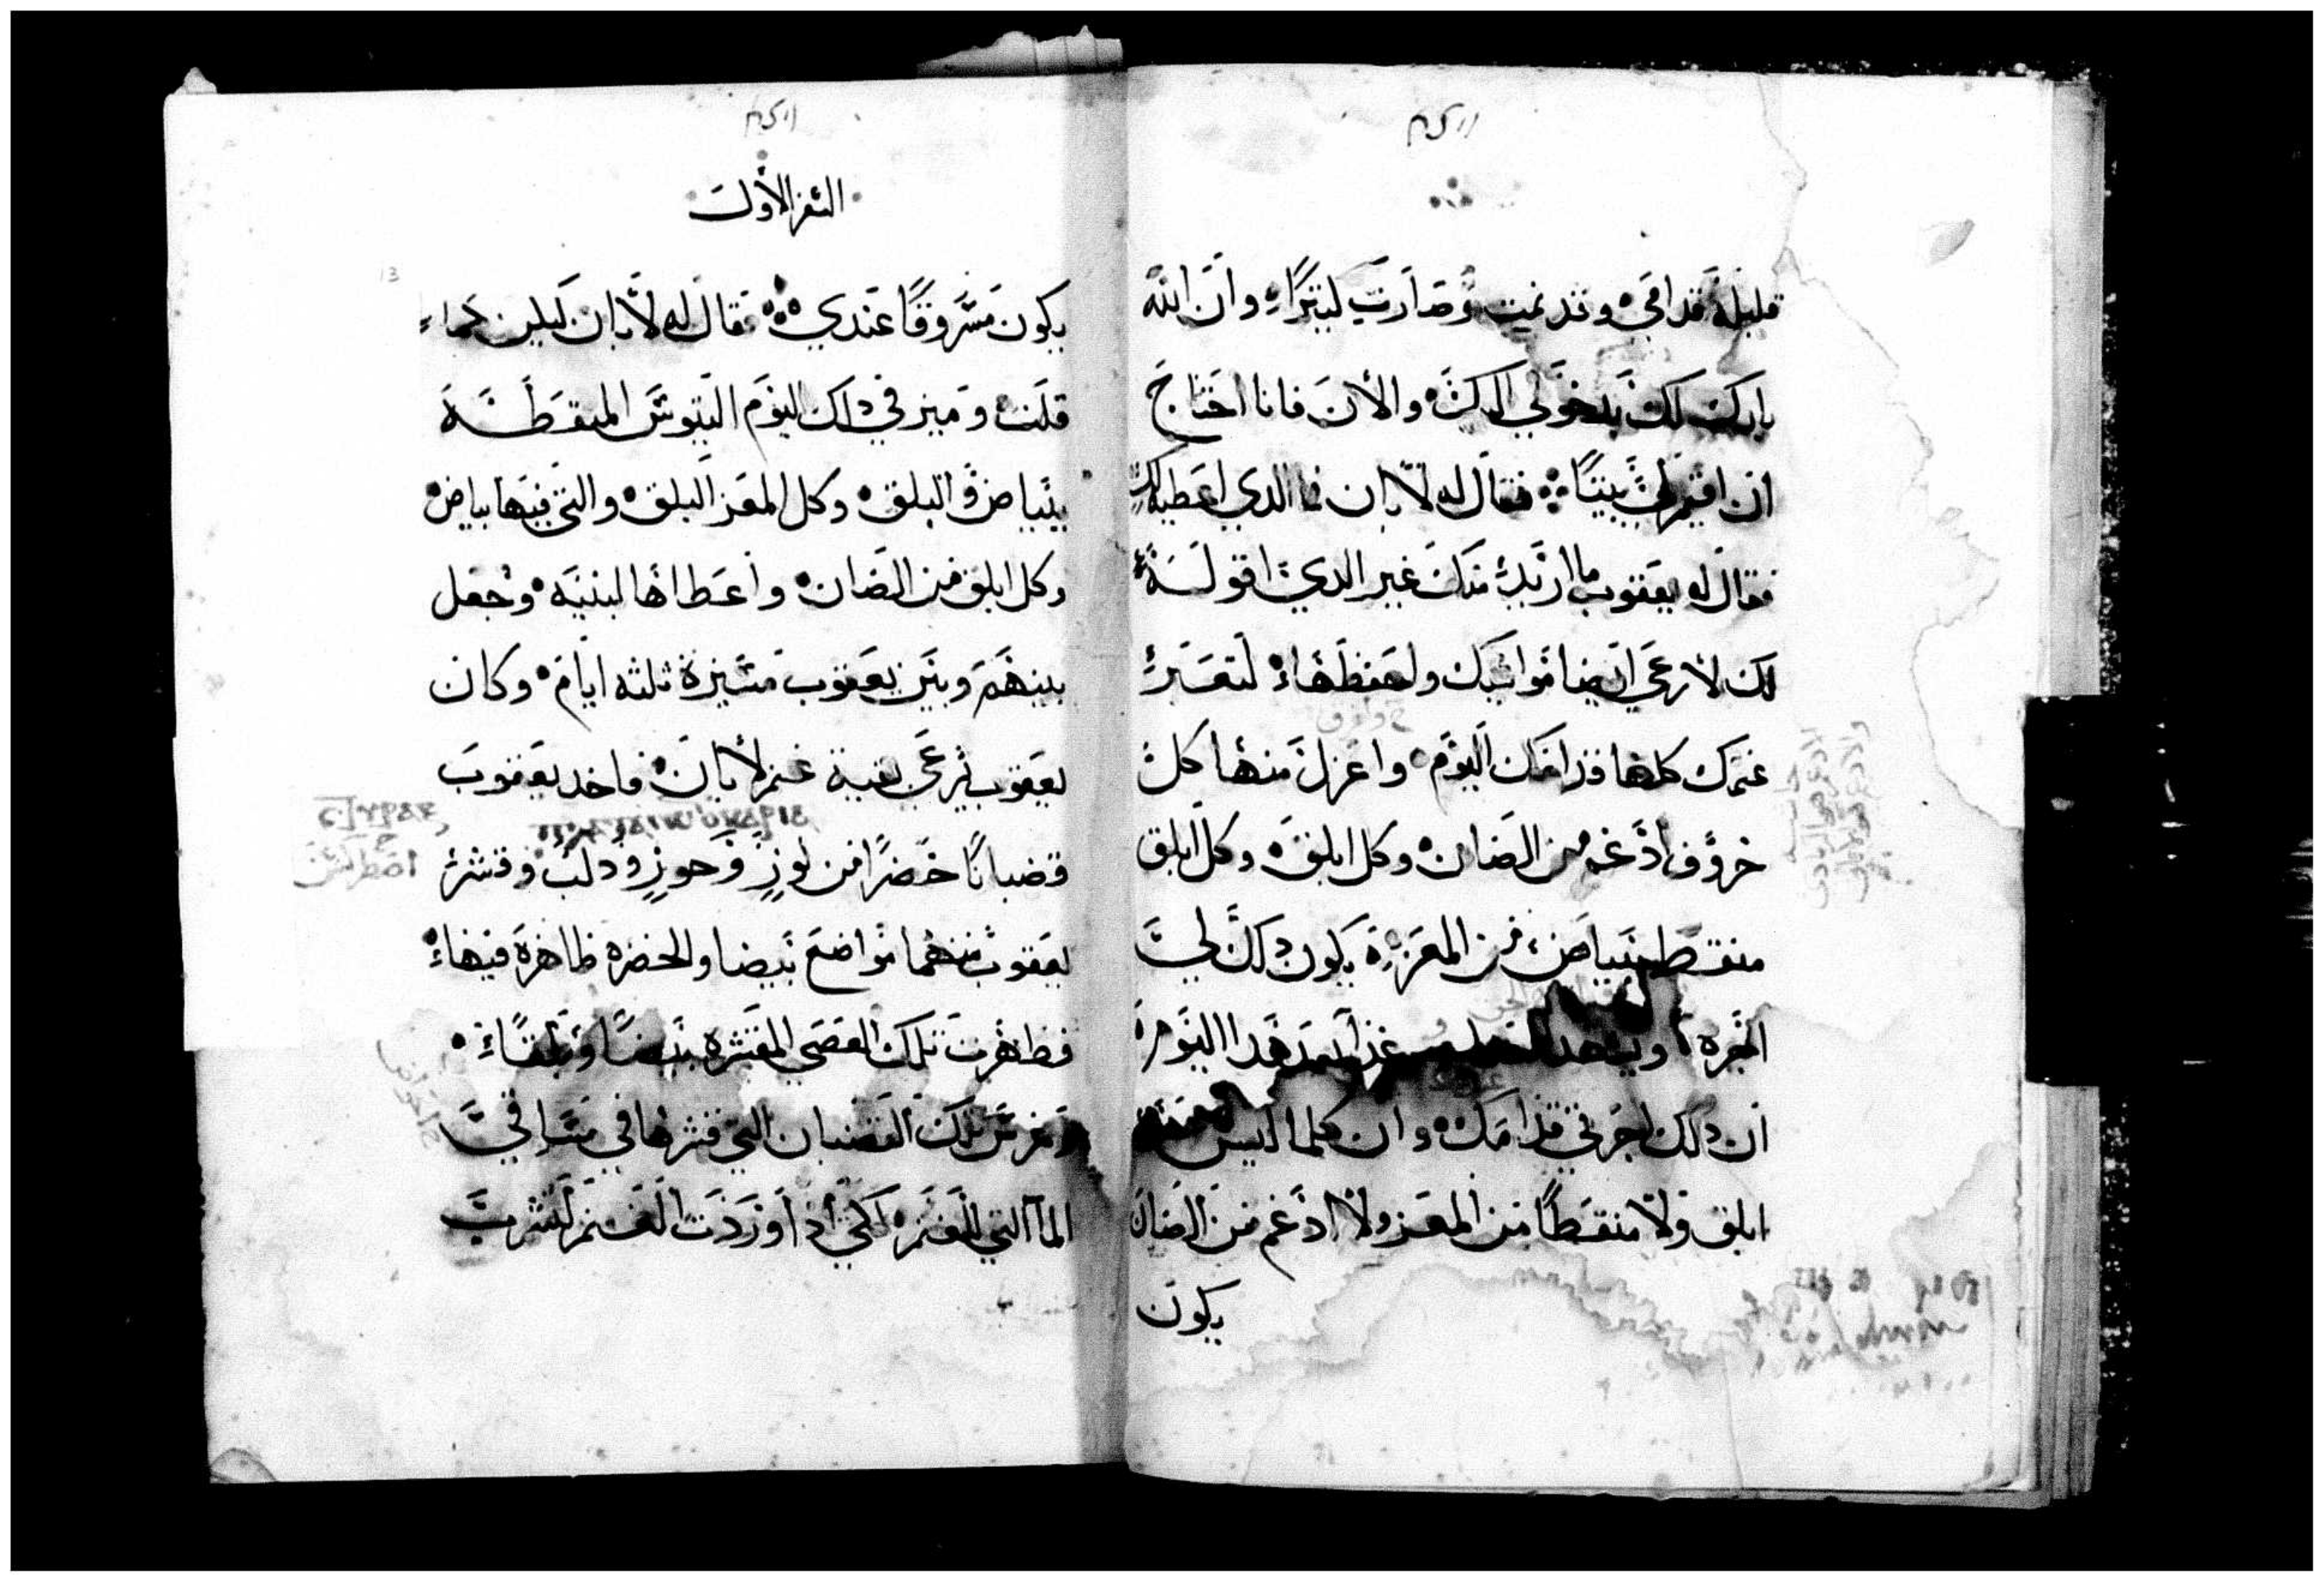 قليلة قدامي وقد نمت وصارت كثيرا وان الله
بارك لك بدخولي اليك والان فانا احتاج
ان اقيم لي بيتا فقال له لابان فما الدي اعطيك
فقال له يعقوب ما اريد منك غير الدي اقوله
لك لارعي ايضا مواشيك ولحفظها لتعبر
غنمك كلها قدامك اليوم واعزل منها كل
خروف ادغم من الضان وكل ابلق وكل ابلق
منقط ببياض من المعزة يكون دلك لي
اجره غدا هدا اليوم
ان دلك اجرتي قدامك وان كلما ليس
ابلق ولا منقطا من المعز ولا ادغم من الضان
يكون
السفر الاول
يكون مسروقا عندي فقال له لابان ليكن كما
قلت وميز في دلك اليوم التيوس المنقطه
ببياض والبلق وكل المعز البلق والتي فيها بياض
وكل ابلق من الضان واعطاها لبنيه وجعل
بينهم وبين يعقوب مسيرة ثلثه ايام وكان
يعقوب يرعي بقية غنم لابان فاخد يعقوب
قضبانا خضرا من لوز وجوز ودلب وقشر
يعقوب منهما مواضع بيضا والخضره ظاهرة فيها
فظهرت تلك العصي المقشره بيضا وبلقا
وغرس تلك القضبان التي قشرها في مساقي
الما التي للغنم لكي ادا وردت الغنم لتشرب